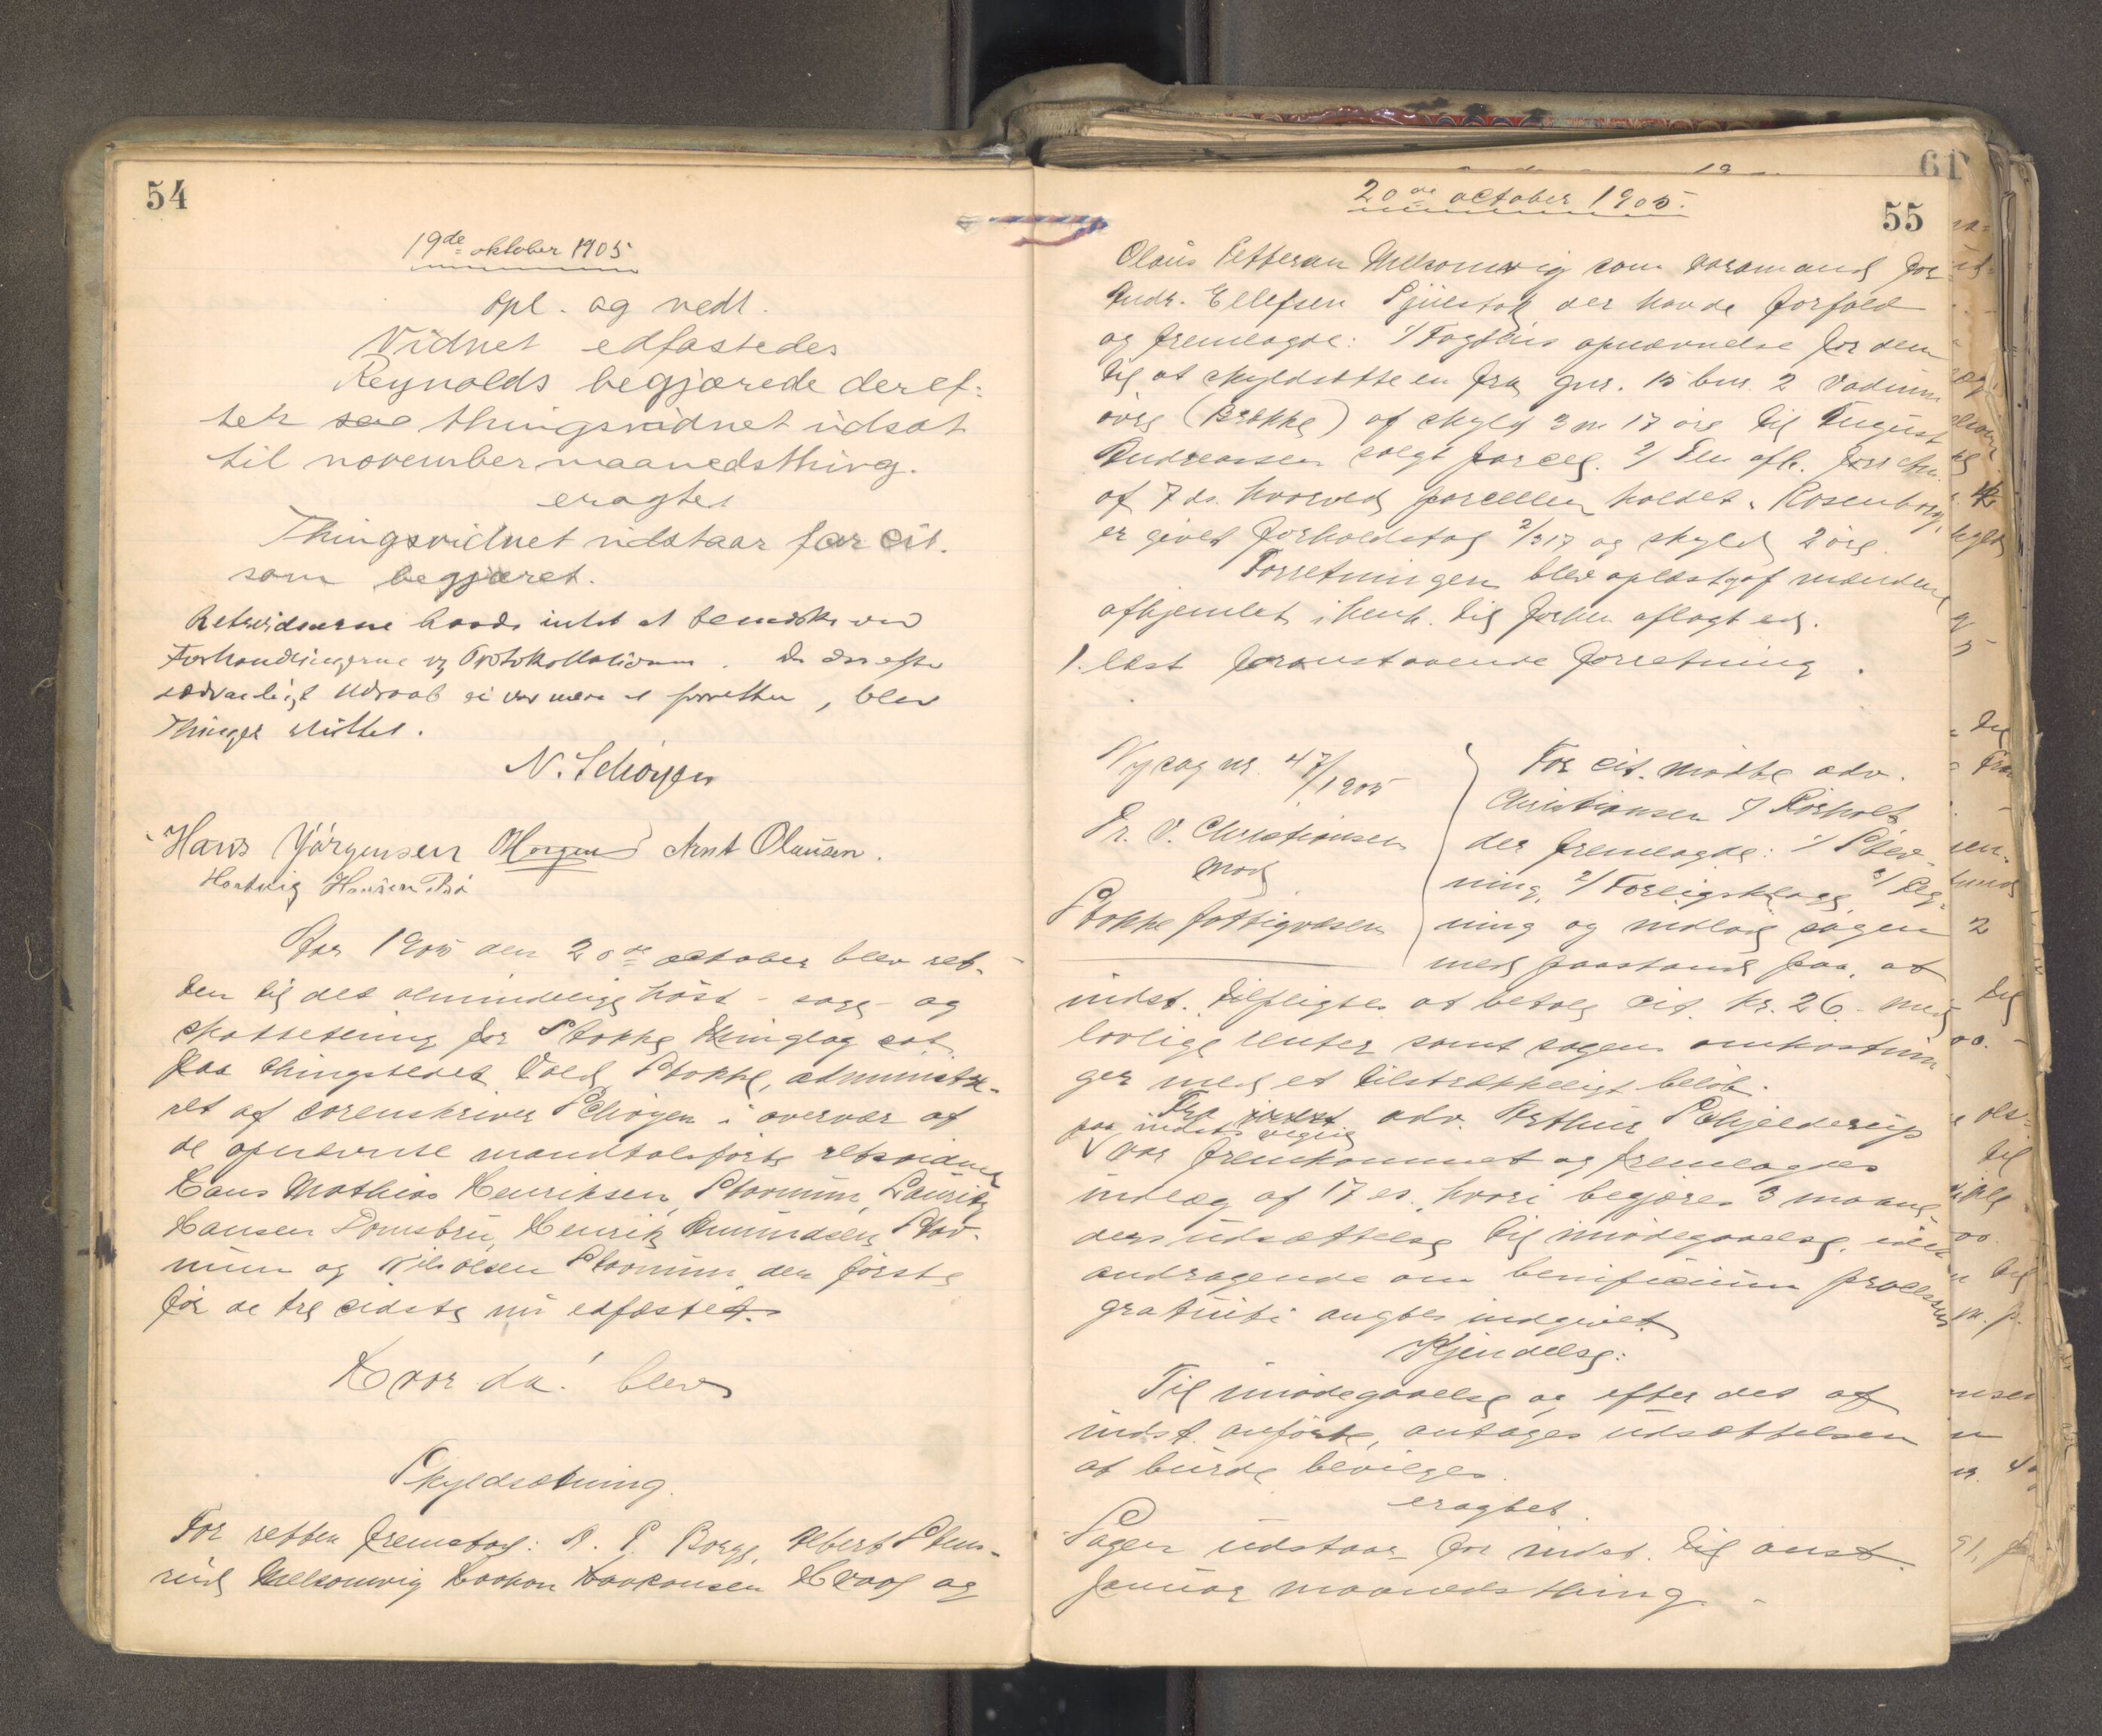 54
19de oktober 1905
opl. og vedt.
Vidnet edfæstedes
Reynolds begjærede deref-
ter thingsvidnet udsat
til november maanedsthing.
eragtet
Thingsvidnet udstaar for cit.
som begjæret.
Retsvidnerne havde intet at bemærke ved
Forhandlingerne og Protokollationen. Da der efter
sædvanligt Udraab ei var mere at forrette, blev
Thinget sluttet.
N. Schöyen
Hans Jörgensen Arnt Olausen.
Hartvig Hansen Bö
Aar 1905 den 20de october blev ret-
ten til det almindelige höst- sage- og
skattething for Stokke thinglag sat
paa thingstedet Vold, Stokke, administre-
ret af sorenskriver Schöyen i overvær af
de opnævnte mandtalsförte retsvidner
Hans Mathias Henriksen, Laurits
Hansen Henrik Amundsen
og Nils Olsen den förste
för de tre sidste nu edfæstet.
Hvor da! blev
Skyldsætning.
For retten fremstod: N. P. Borge, Albert Stens-
rud Melsomvig Haakon Haakonsen og
20de october 1905.
55
Olaus Pettersen Melsomvig som varamand for
Andr. Ellefsen der havde forfald
og fremlagde: 1/ Fogdens opnævnelse for dem
til at skyldsætte en fra gnr. 15 bnr. 2 Vadum
övre (Brække) af skyld 3 m 17 öre til August
Andreassen solgt parcel. 2/ Den afh. forretn.
af 7 ds. hvorved parcellen kaldet "Rosenborg"
er givet forholdstal 2/317 og skyld 2 öre.
Forretningen blev oplæst og af mændene
afhjemlet i henh. til forhen aflagt ed.
1. læst foranstaaende forretning.
Ny sag nr. 47/1905
Fr. V. Christiansen
mod
Stokke fattigvæsen
For cit. mödte adv.
Christiansen
der fremlagde: 1/ Stev-
ning, 2/ Forligsklage 3/ Reg-
ning og indlod sagen
med paastand paa, at
indst. tilpligtes at betale cit. kr. 26.- med
lovlige renter samt sagens omkostnin-
ger med et tilstrækkeligt belöb.
Fra adv. Arthur Schjelderup
paa indst.s vegne
var fremkommet og fremlagdes
indlæg af 17 ds. hvori begjæres 3 maane-
ders udsættelse til imödegaaelse, idet
andragende om benificium processus
gratuiti angtes indgivet.
Kjendelse:
Til imödegaaelse og efter det af
indst. anförte, antages udsættelsen
at burde bevilges.
eragtet.
Sagen udstaar for indst. til anst.
januar maanedsthing.
61